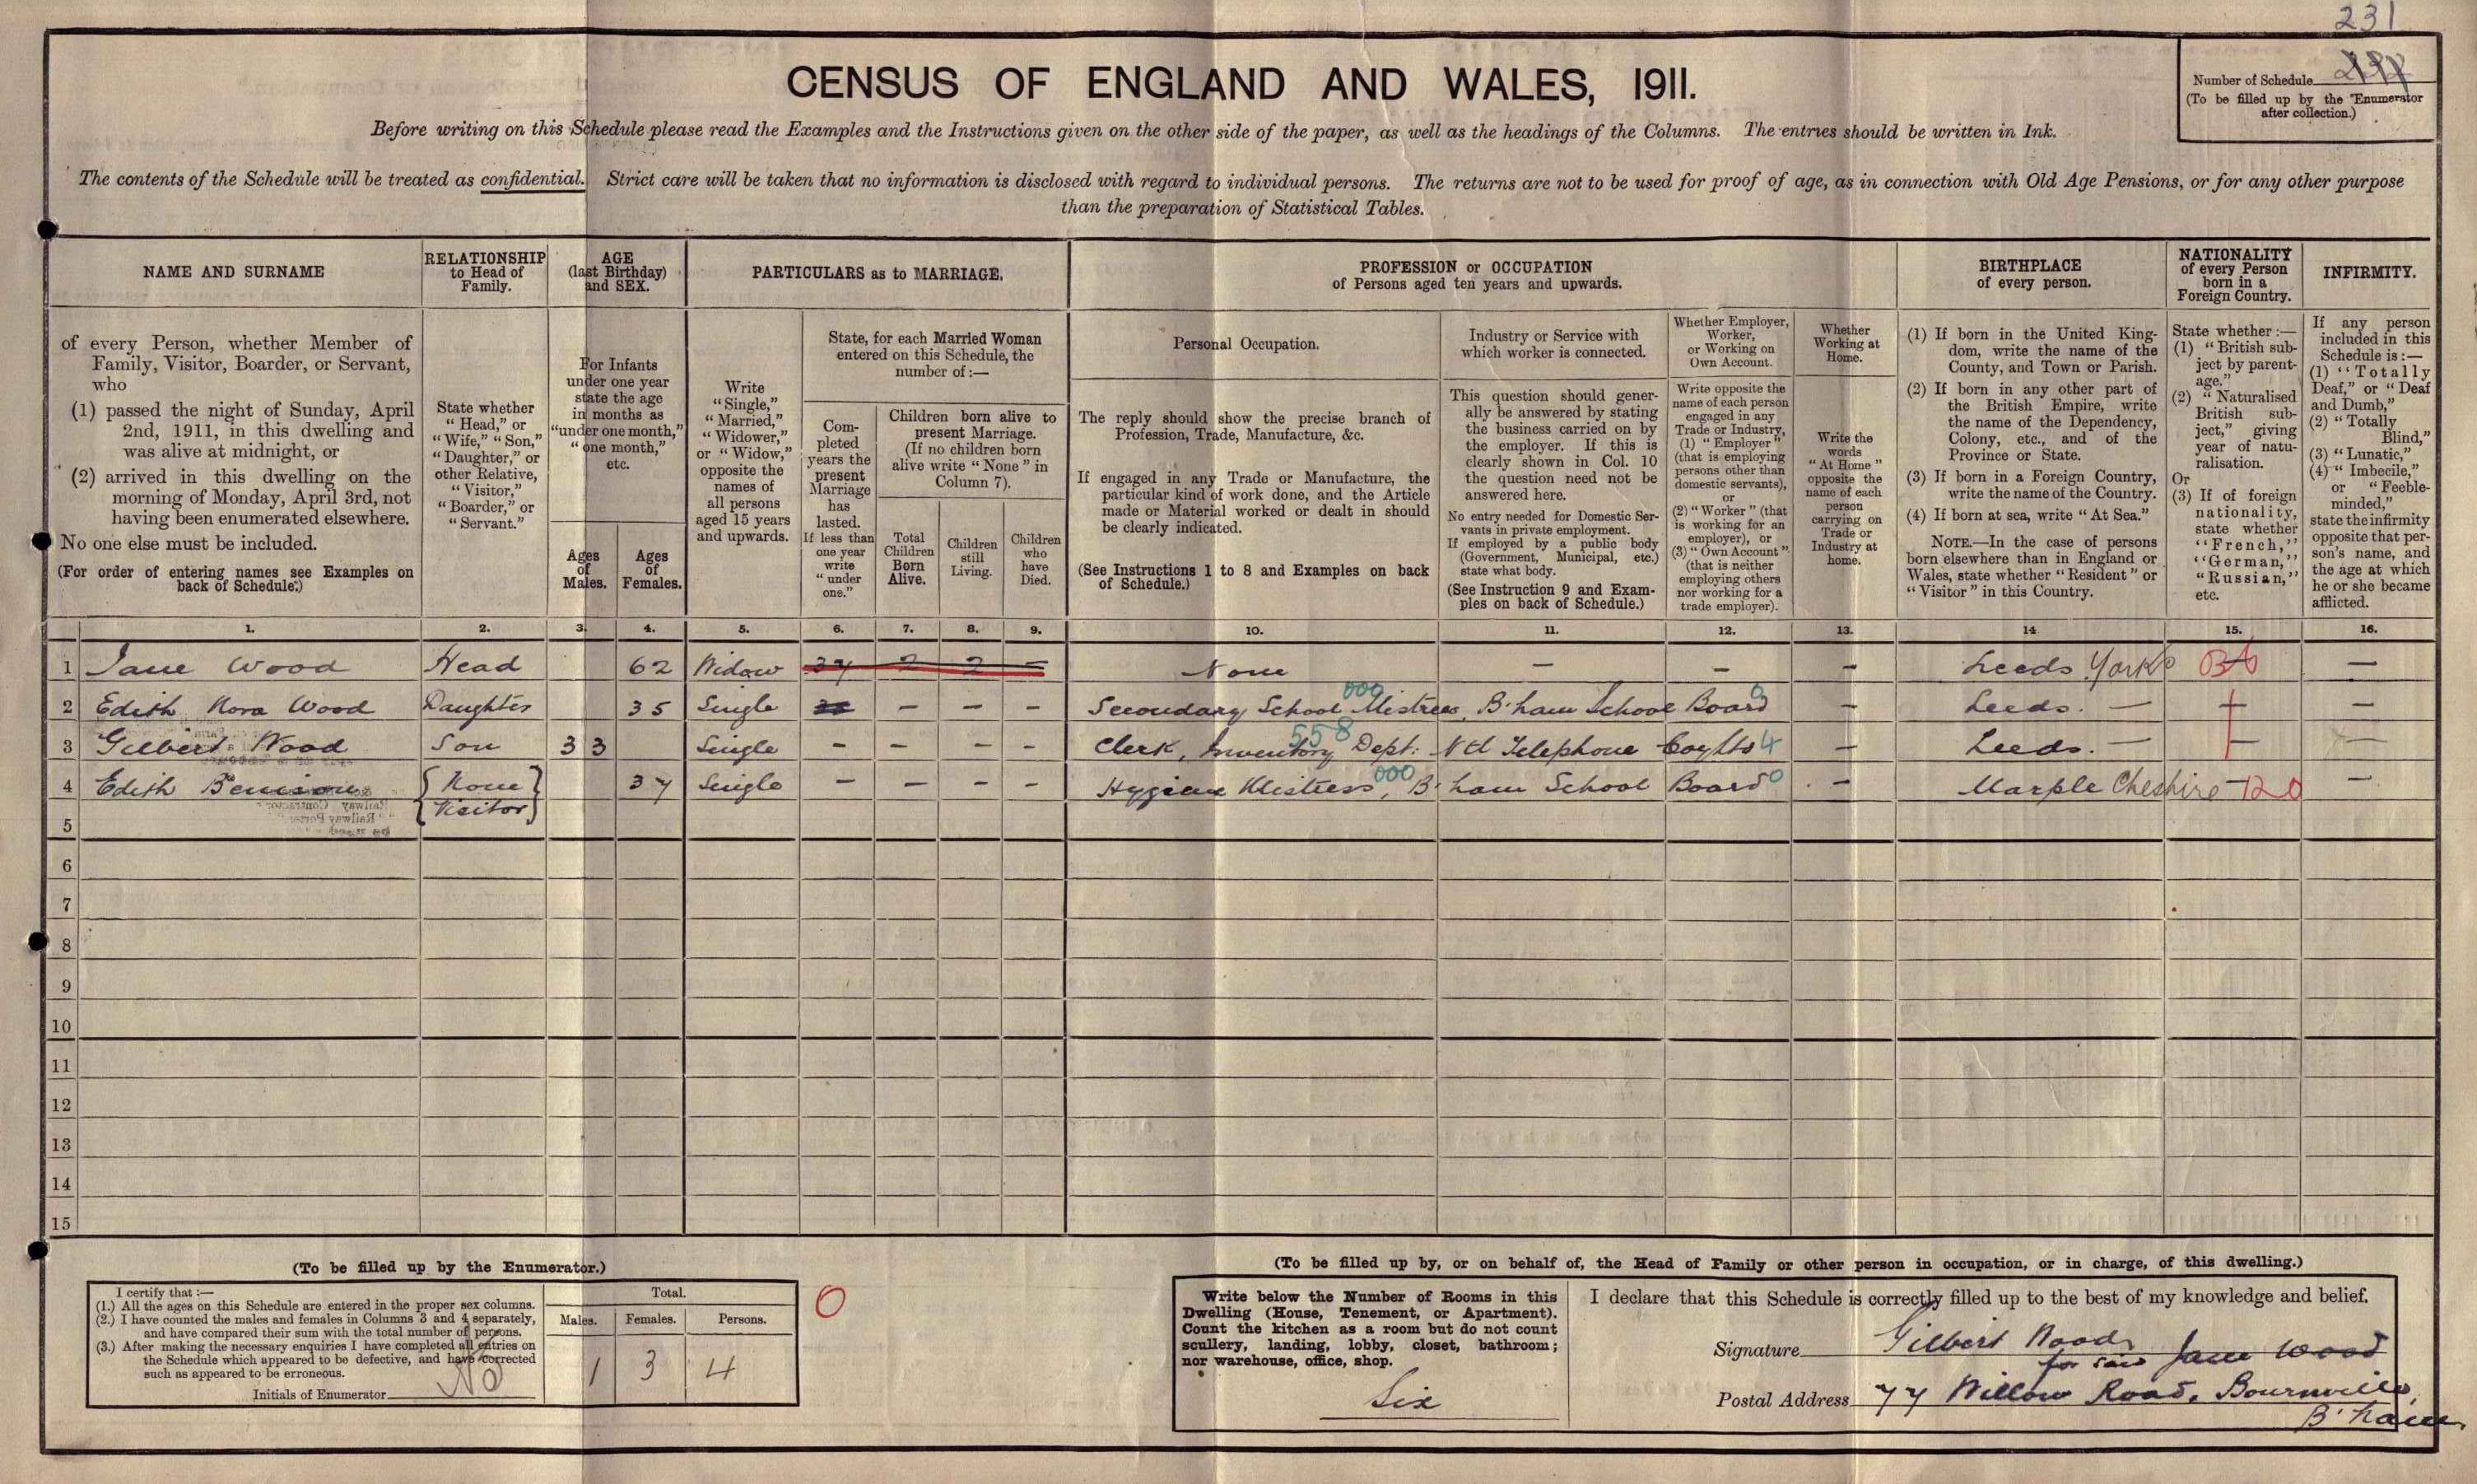 231
CENSUS OF ENGLAND AND WALES, 1911.
Number of Schedule
(To be filled up by the Enumerator
after collection.)
Before writing on this Schedule please read the Examples and the Instructions given on the other side of the paper, as well as the headings of the Columns. The entries should be written in Ink.
The contents of the Schedule will be treated as confidential. Strict care will be taken that no information is disclosed with regard to individual persons. The returns are not to be used for proof of age, as in connection with Old Age Pensions, or for any other purpose
than the preparation of Statistical Tables.
NAME AND SURNAME
of every Person, whether Member of
Family, Visitor, Boarder, or Servant,
who
(1) passed the night of Sunday, April
2nd, 1911, in this dwelling and
was alive at midnight, or
(2) arrived in this dwelling on the
morning of Monday, April 3rd, not
having been enumerated elsewhere.
No one else must be included.
(For order of entering names see Examples on
back of Schedule.)
RELATIONSHIP
to Head of
Family.
State whether
"Head," or
"Wife," "Son,"
"Daughter," or
other Relative,
"Visitor,"
"Boarder," or
"Servant."
AGE
(last Birthday)
and SEX.
For Infants
under one year
state the age
in months as
"under one month,"
"one month,"
etc.
Ages
of
Males.
Ages
of
Females.
PARTICULARS as to MARRIAGE.
Write
"Single,"
"Married,"
"Widower,"
or "Widow,"
opposite the
names of
all persons
aged 15 years
and upwards.
State, for each Married Woman
entered on this Schedule, the
number of:—
Com-
pleted
years the
present
Marriage
has
lasted.
If less than
one year
write
"under
one."
Children born alive to
present Marriage.
(If no children born
alive write "None" in
Column 7).
Total
Children
Born
Alive.
Children
still
Living.
Children
who
have
Died.
PROFESSION or OCCUPATION
of Persons aged ten years and upwards.
Personal Occupation.
The reply should show the precise branch of
Profession, Trade, Manufacture, &c.
If engaged in any Trade or Manufacture, the
particular kind of work done, and the Article
made or Material worked or dealt in should
be clearly indicated.
(See Instructions 1 to 8 and Examples on back
of Schedule.)
Industry or Service with
which worker is connected.
This question should gener-
ally be answered by stating
the business carried on by
the employer. If this is
clearly shown in Col. 10
the question need not be
answered here.
No entry needed for Domestic Ser-
vants in private employment.
If employed by a public body
(Government, Municipal, etc.)
state what body.
(See Instruction 9 and Exam-
ples on back of Schedule.)
Whether Employer,
Worker,
or Working on
Own Account.
Write opposite the
name of each person
engaged in any
Trade or Industry,
(1) "Employer"
(that is employing
persons other than
domestic servants),
or
(2) "Worker" (that
is working for an
employer), or
(3) "Own Account"
(that is neither
employing others
nor working for a
trade employer).
Whether
Working at
Home.
Write the
words
"At Home"
opposite the
name of each
person
carrying on
Trade or
Industry at
home.
BIRTHPLACE
of every person.
(1) If born in the United King-
dom, write the name of the
County, and Town or Parish.
(2) If born in any other part of
the British Empire, write
the name of the Dependency,
Colony, etc., and of the
Province or State.
(3) If born in a Foreign Country,
write the name of the Country.
(4) If born at sea, write "At Sea."
NOTE.—In the case of persons
born elsewhere than in England or
Wales, state whether "Resident" or
"Visitor" in this Country.
NATIONALITY
of every Person
born in a
Foreign Country.
State whether:—
(1) "British sub-
ject by parent-
age,"
(2) "Naturalised
British sub-
ject," giving
year of natu-
ralisation.
Or
(3) If of foreign
nationality,
state whether
"French,"
"German,"
"Russian,"
etc.
INFIRMITY.
If any person
included in this
Schedule is:—
(1) "Totally
Deaf," or "Deaf
and Dumb,"
(2) "Totally
Blind,"
(3) "Lunatic,"
(4) "Imbecile,"
or "Feeble-
minded,"
state the infirmity
opposite that per-
son's name, and
the age at which
he or she became
afflicted.
1. 2. 3. 4. 5. 6. 7. 8. 9. 10. 11. 12. 13. 14 15. 16.
1 Jane Wood Head 62 Widow 37 2 2 – None – – – Leeds Yorks –
2 Edith Nora Wood Daughter 35 Single – – – Secondary School Mistress, B'ham School Board – Leeds. – –
000 0
3 Gilbert Wood Son 33 Single – – – – Clerk, Inventory Dept: Ntl Telephone Coy Ltd – Leeds. – –
558 4
4 Edith Benison {None Visitor} 37 Single – – – – Hygiene Mistress, B'ham School Board – Marple Cheshire – 120 –
000 0
5
6
7
8
9
10
11
12
13
14
15
(To be filled up by the Enumerator.)
I certify that:—
(1.) All the ages on this Schedule are entered in the proper sex columns.
(2.) I have counted the males and females in Columns 3 and 4 separately,
and have compared their sum with the total number of persons.
(3.) After making the necessary enquiries I have completed all entries on
the Schedule which appeared to be defective, and have corrected
such as appeared to be erroneous.
Initials of Enumerator
Total.
Males. Females. Persons.
1 3 4
0
(To be filled up by, or on behalf of, the Head of Family or other person in occupation, or in charge, of this dwelling.)
Write below the Number of Rooms in this
Dwelling (House, Tenement, or Apartment).
Count the kitchen as a room but do not count
scullery, landing, lobby, closet, bathroom;
nor warehouse, office, shop.
Six
I declare that this Schedule is correctly filled up to the best of my knowledge and belief.
Signature Gilbert Wood
for said Jane Wood
Postal Address 77 Willow Road, Bournville,
B'ham